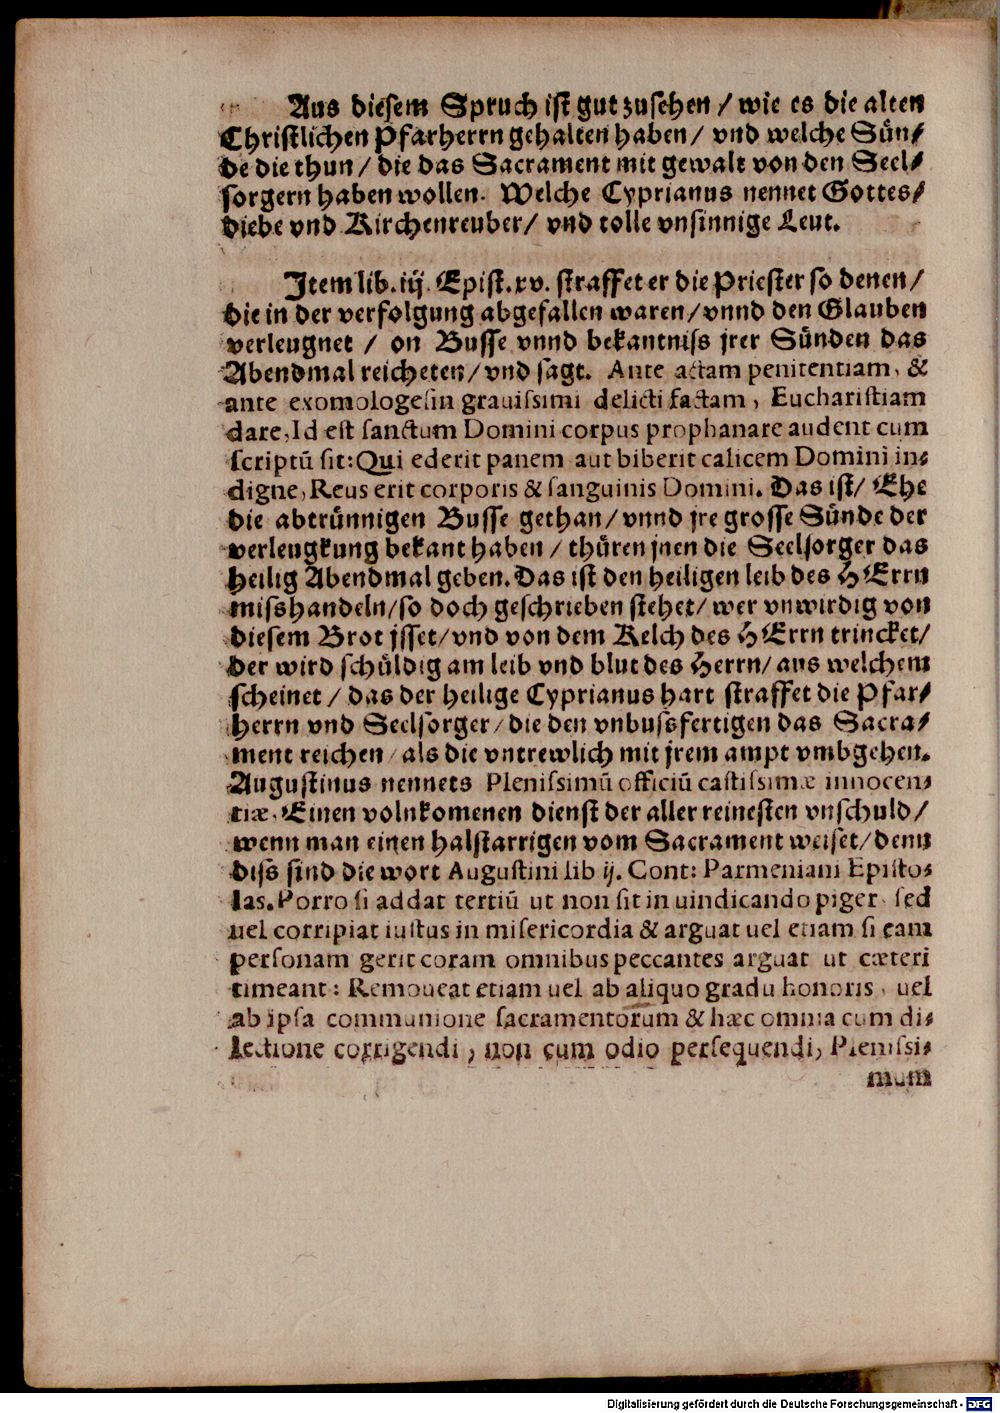 Aus diesem Spruch ist gut zusehen / wie es die alten
Christlichen Pfarherrn gehalten haben / vnd welche Sün⸗
de die thun / die das Sacrament mit gewalt von den Seel⸗
sorgern haben wollen. Welche Cyprianus nennet Gottes⸗
diebe vnd Kirchenreuber / vnd tolle vnsinnige Leut.
Item lib. iij. Epist. xv. straffet er die Priester so denen /
die in der verfolgung abgefallen waren / vnnd den Glauben
verleugnet / on Busse vnnd bekantniss jrer Sünden das
Abendmal reicheten / vnd sagt. Ante actam penitentiam, &
ante exomologesin grauissimi delicti factam, Eucharistiam
dare, Id est sanctum Domini corpus prophanare audent cum
scriptū sit: Qui ederit panem aut biberit calicem Domini in⸗
digne, Reus erit corporis & sanguinis Domini. Das ist / Ehe
die abtrünnigen Busse gethan / vnnd jre grosse Sünde der
verleugkung bekant haben / thüren jnen die Seelsorger das
heilig Abendmal geben. Das ist den heiligen leib des HErrn
misshandeln / so doch geschrieben stehet / wer vnwirdig von
diesem Brot jsset / vnd von dem Kelch des HErrn trincket /
der wird schüldig am leib vnd blut des Herrn / aus welchem
scheinet / das der heilige Cyprianus hart straffet die Pfar⸗
herrn vnd Seelsorger / die den vnbussfertigen das Sacra⸗
ment reichen / als die vntrewlich mit jrem ampt vmbgehen.
Augustinus nennets Plenissimū officiū castissimæ innocen⸗
tiæ, Einen volnkomenen dienst der aller reinesten vnschuld /
wenn man einen halstarrigen vom Sacrament weiset / denn
diss sind die wort Augustini lib ij. Cont: Parmeniani Episto⸗
las. Porro si addat tertiū ut non sit in uindicando piger sed
uel corripiat iustus in misericordia & arguat uel etiam si eam
personam gerit coram omnibus peccantes arguat ut cæteri
timeant: Remoueat etiam uel ab aliquo gradu honoris, uel
ab ipsa communione sacramentorum & hæc omnia cum di⸗
lectione corrigendi, non cum odio persequendi, Plenissi⸗
mum
Digitalisierung gefördert durch die Deutsche Forschungsgemeinschaft - DFG